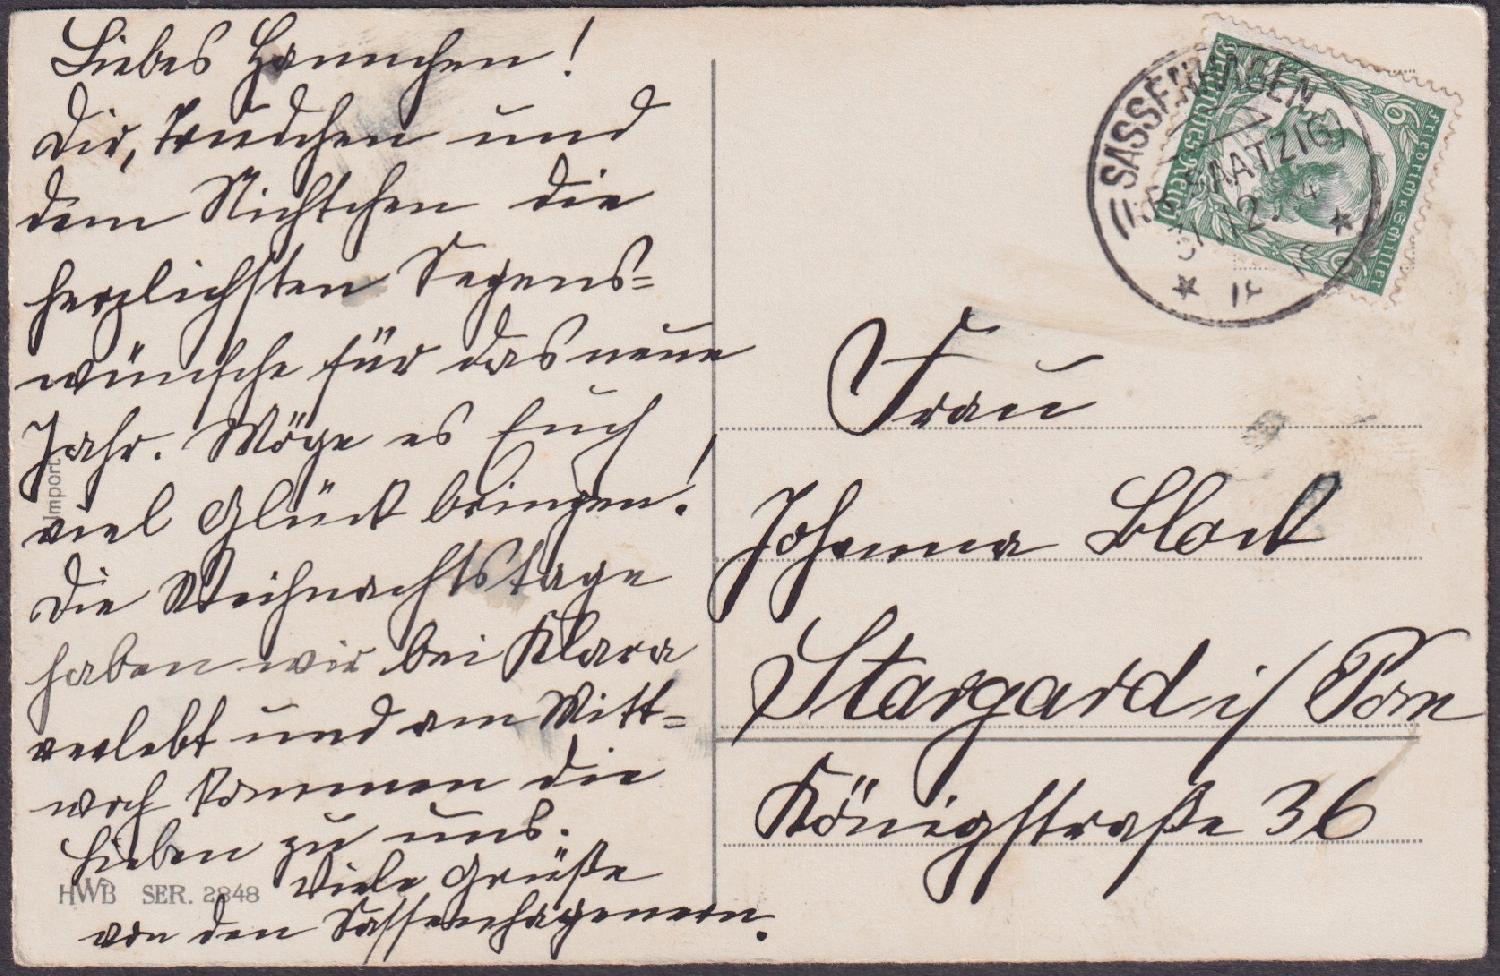 Liebes Hannchen!
Dir, Trudchen und
dem Nichtchen die
herzlichsten Segens=
wünsche für das neue
Jahr. Möge es Euch
viel Glück bringen!
Die Weihnachtstage
haben wir bei Klara
verlebt und am Mitt=
woch kommen die
Lieben zu uns.
Viele Grüße
von den Sassenhagenern.
Import
HWB SER. 2848
SASSENHAGEN
SAATZIG
31.12.34
Friedrich v. Schiller
Deutsches Reich
6
Frau
Johanna Block
Stargard i/ Pom
Königstraße 36